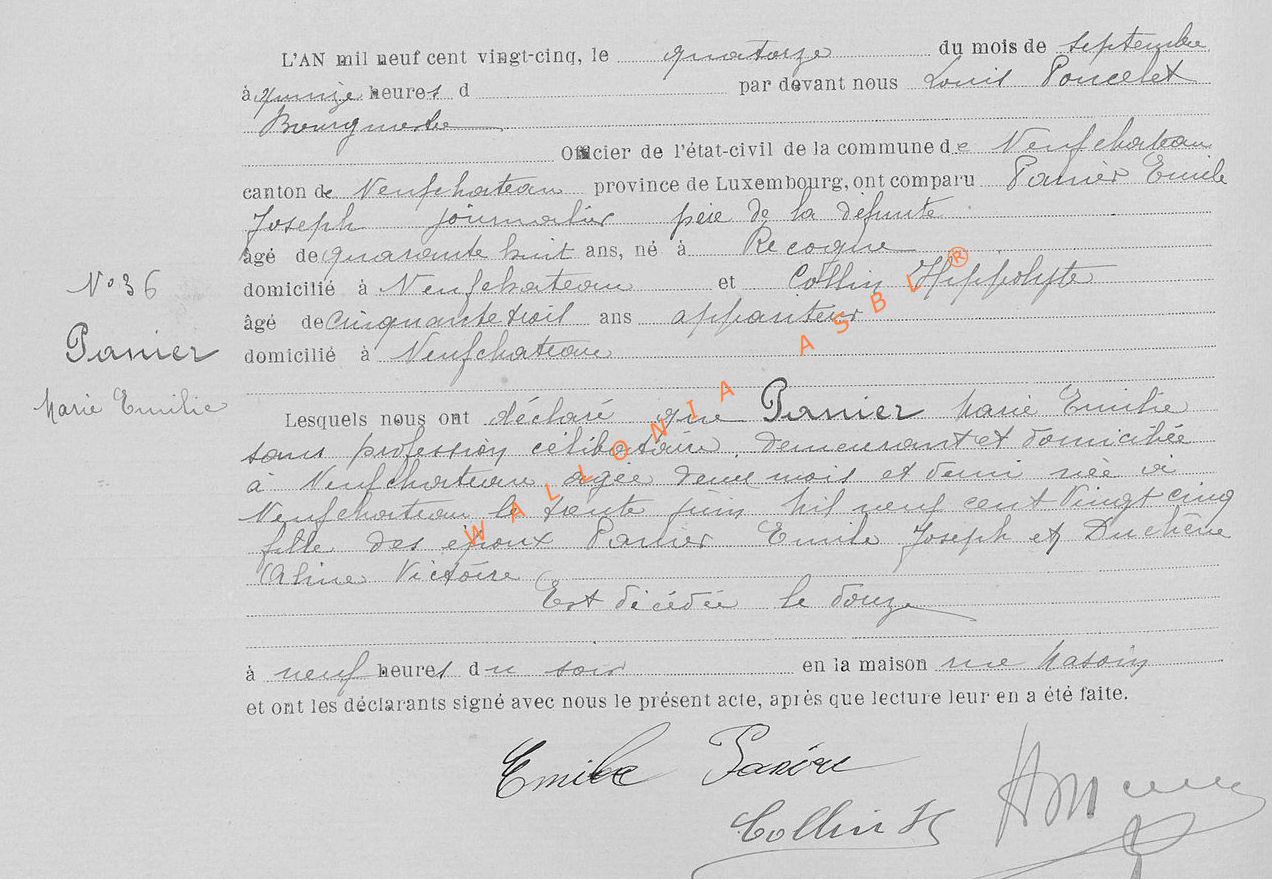 L'AN mil neuf cent vingt-cinq, le quatorze du mois de septembre
à quinze heures d par devant nous Louis Poncelet
Bourgmestre
Officier de l'état-civil de la commune de Neufchateau
canton de Neufchateau province de Luxembourg, ont comparu Panier Emile
Joseph journalier père de la défunte
âgé de quarante huit ans, né à Recogne
N° 36
domicilié à Neufchateau et Collin Hippolyte
âgé de cinquante trois ans appariteur
Panier
domicilié à Neufchateau
Marie Emilie
Lesquels nous ont déclaré que Panier Marie Emilie
sans profession célibataire, demeurant et domiciliée
à Neufchateau agée deux mois et demi née à
Neufchateau le trente juin mil neuf cent vingt cinq
fille des époux Panier Emile Joseph et Duchêne
Aline Victoire
Est décédée le douze
à neuf heures du soir en la maison rue
et ont les déclarants signé avec nous le présent acte, après que lecture leur en a été faite.
Emile Panier
Collin H
WALLONIA ASBL®